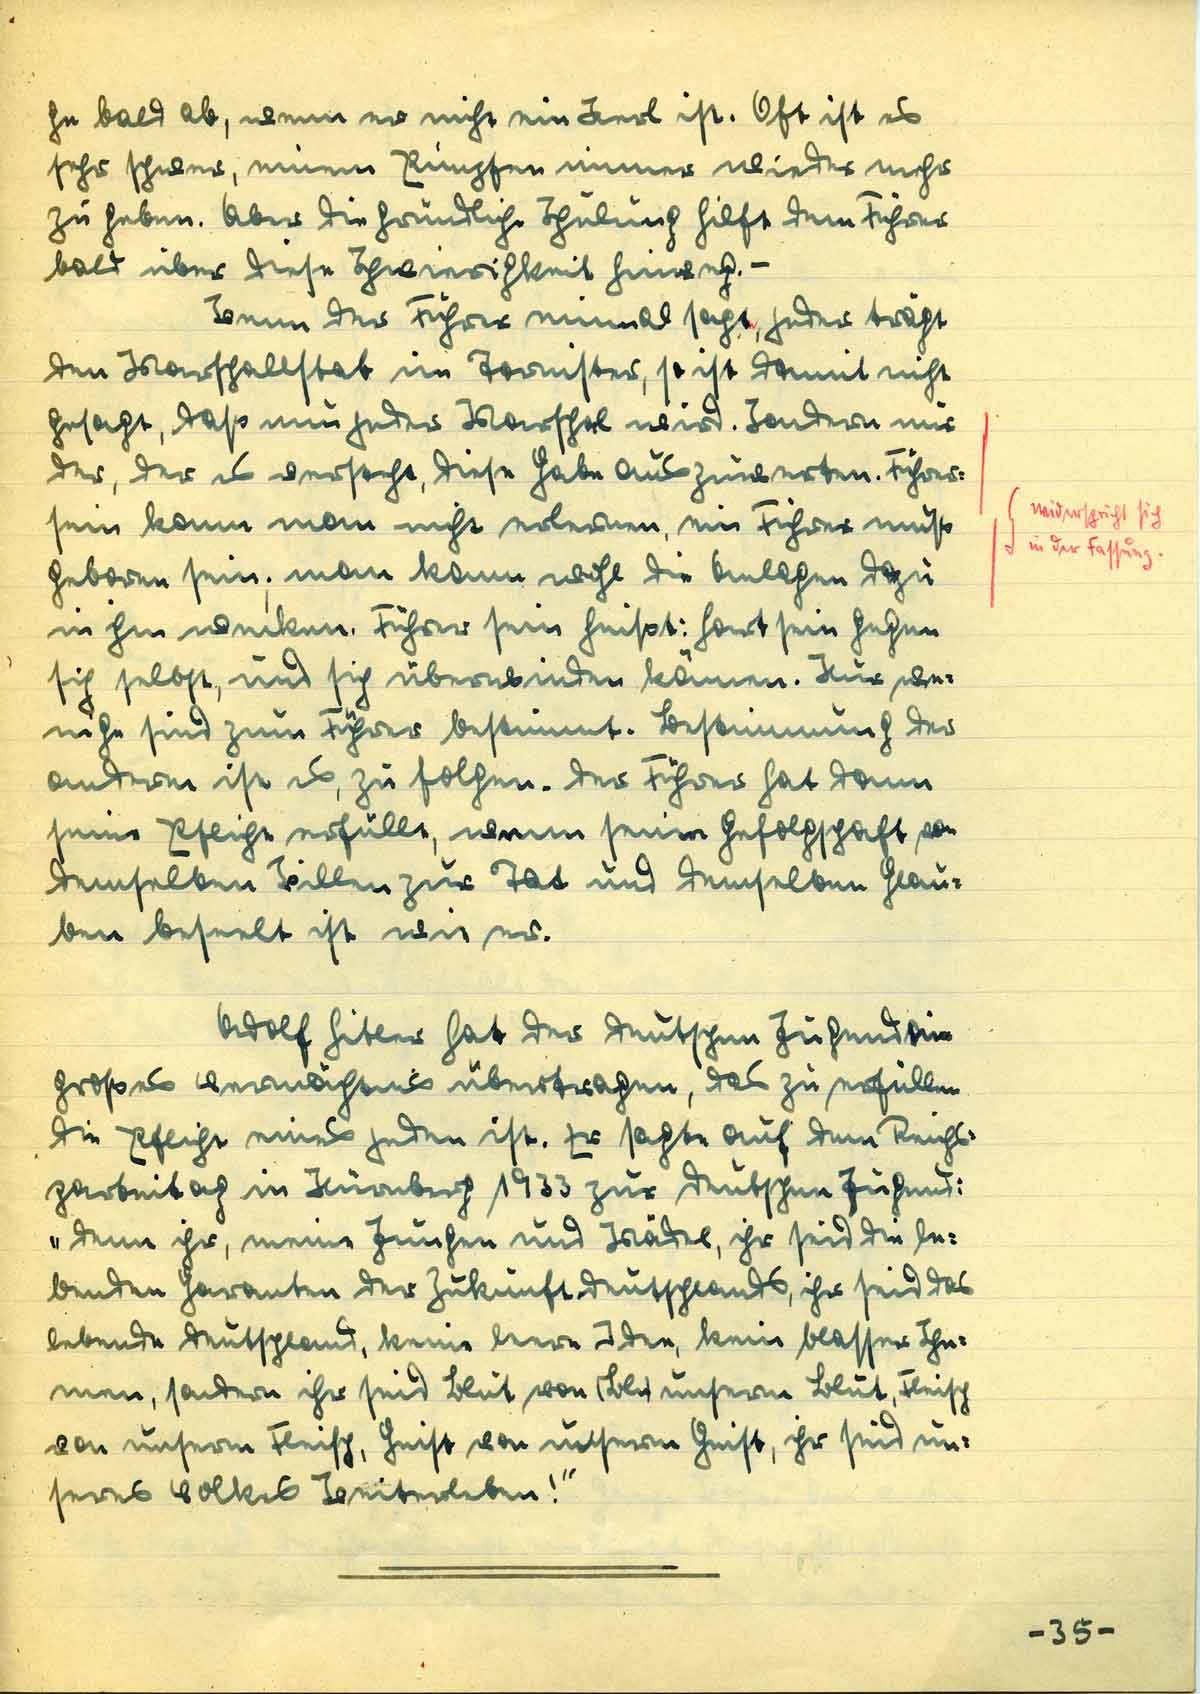 ge bald ab, wenn er nicht ein Kerl ist. Oft ist es
sehr schwer, einem Pimpfen immer wieder mehr
zu geben. Aber die gründliche Schulung hilft dem Führer
bald über diese Schwierigkeit hinweg. –
Wenn der Führer einmal sagt, jeder trägt
den Marschallstab im Tornister, so ist damit nicht
gesagt, dass nun jeder Marschal wird. Sondern nur
der, der es versteht, diese Gabe auszuwerten. Führer=
sein kann man nicht erlernen, ein Führer muss
geboren sein; man kann wohl die Anlagen dazu
in ihm wecken. Führer sein heisst: hart sein gegen
sich selbst, und sich überwinden können. Nur we=
nige sind zum Führer bestimmt. Bestimmung der
anderen ist es, zu folgen. Der Führer hat dann
seine Pflicht erfüllt, wenn seine Gefolgschaft von
demselben Willen zur Tat und demselben Glau=
ben beseelt ist wie er.
Adolf Hitler hat der deutschen Jugend ein
grosses Vermächtnis übertragen, das zu erfüllen
die Pflicht eines jeden ist. Er sagte auf dem Reichs=
parteitag in Nürnberg 1933 zur deutschen Jugend:
"Denn ihr, meine Jungen und Mädel, ihr seid die le=
benden Garanten der Zukunft Deutschlands, ihr seid das
lebende Deutschland, keine leere Idee, kein blasser Sche=
men, sondern ihr seid Blut von (Blu) unserm Blut, Fleisch
von unserm Fleisch, Geist von unserm Geist, ihr seid un=
seres Volkes Weiterleben!"
widerspricht sich
in der Fassung.
-35-